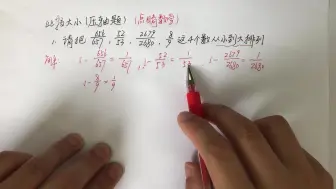 比较大小(压轴题)(点睛数学)
1、请把 656/657, 52/53, 2679/2680, 8/9 这4个数从小到大排列
解: 1-656/657=1/657, 1-52/53=1/53 1-2679/2680=1/2680
1-8/9=1/9